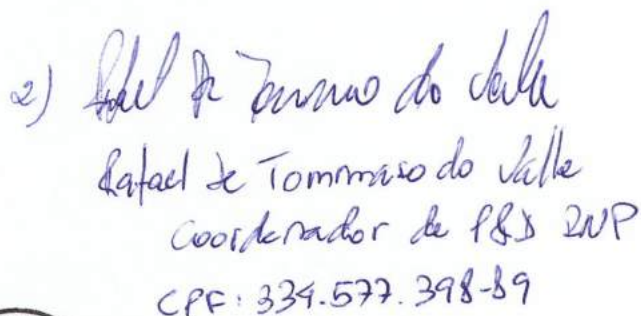 2) Rafael de Tommaso do Valle
Rafael de Tommaso do Valle
Coordenador de P&D RNP
CPF: 334.577.398-89